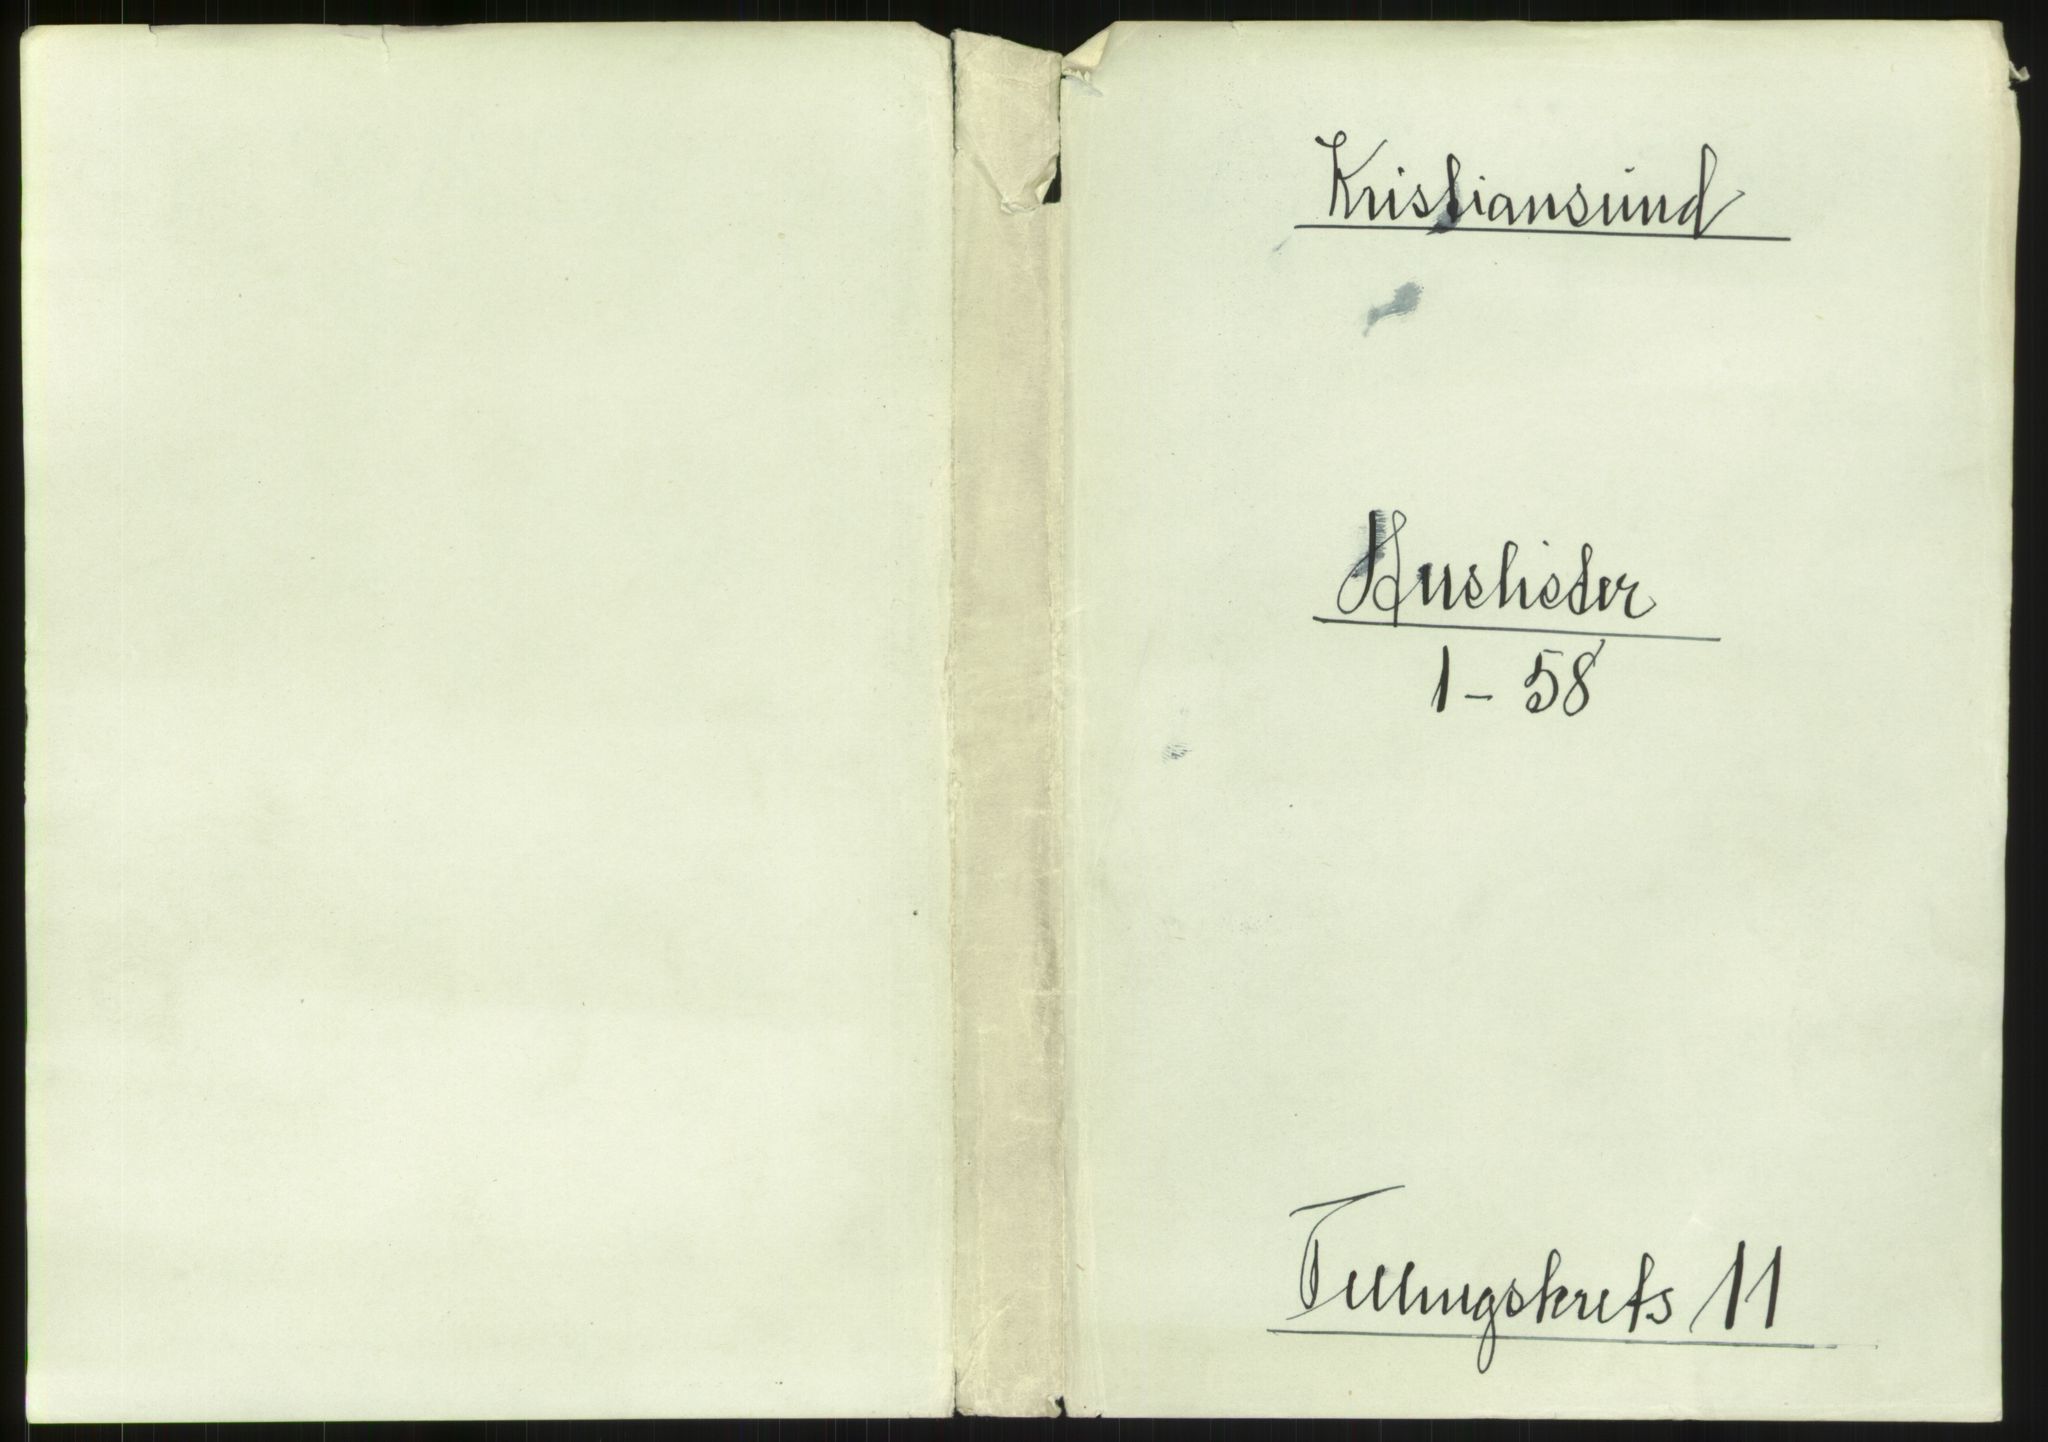 Kristiansund
Huslister
1 - 58
Tellingskrets 11